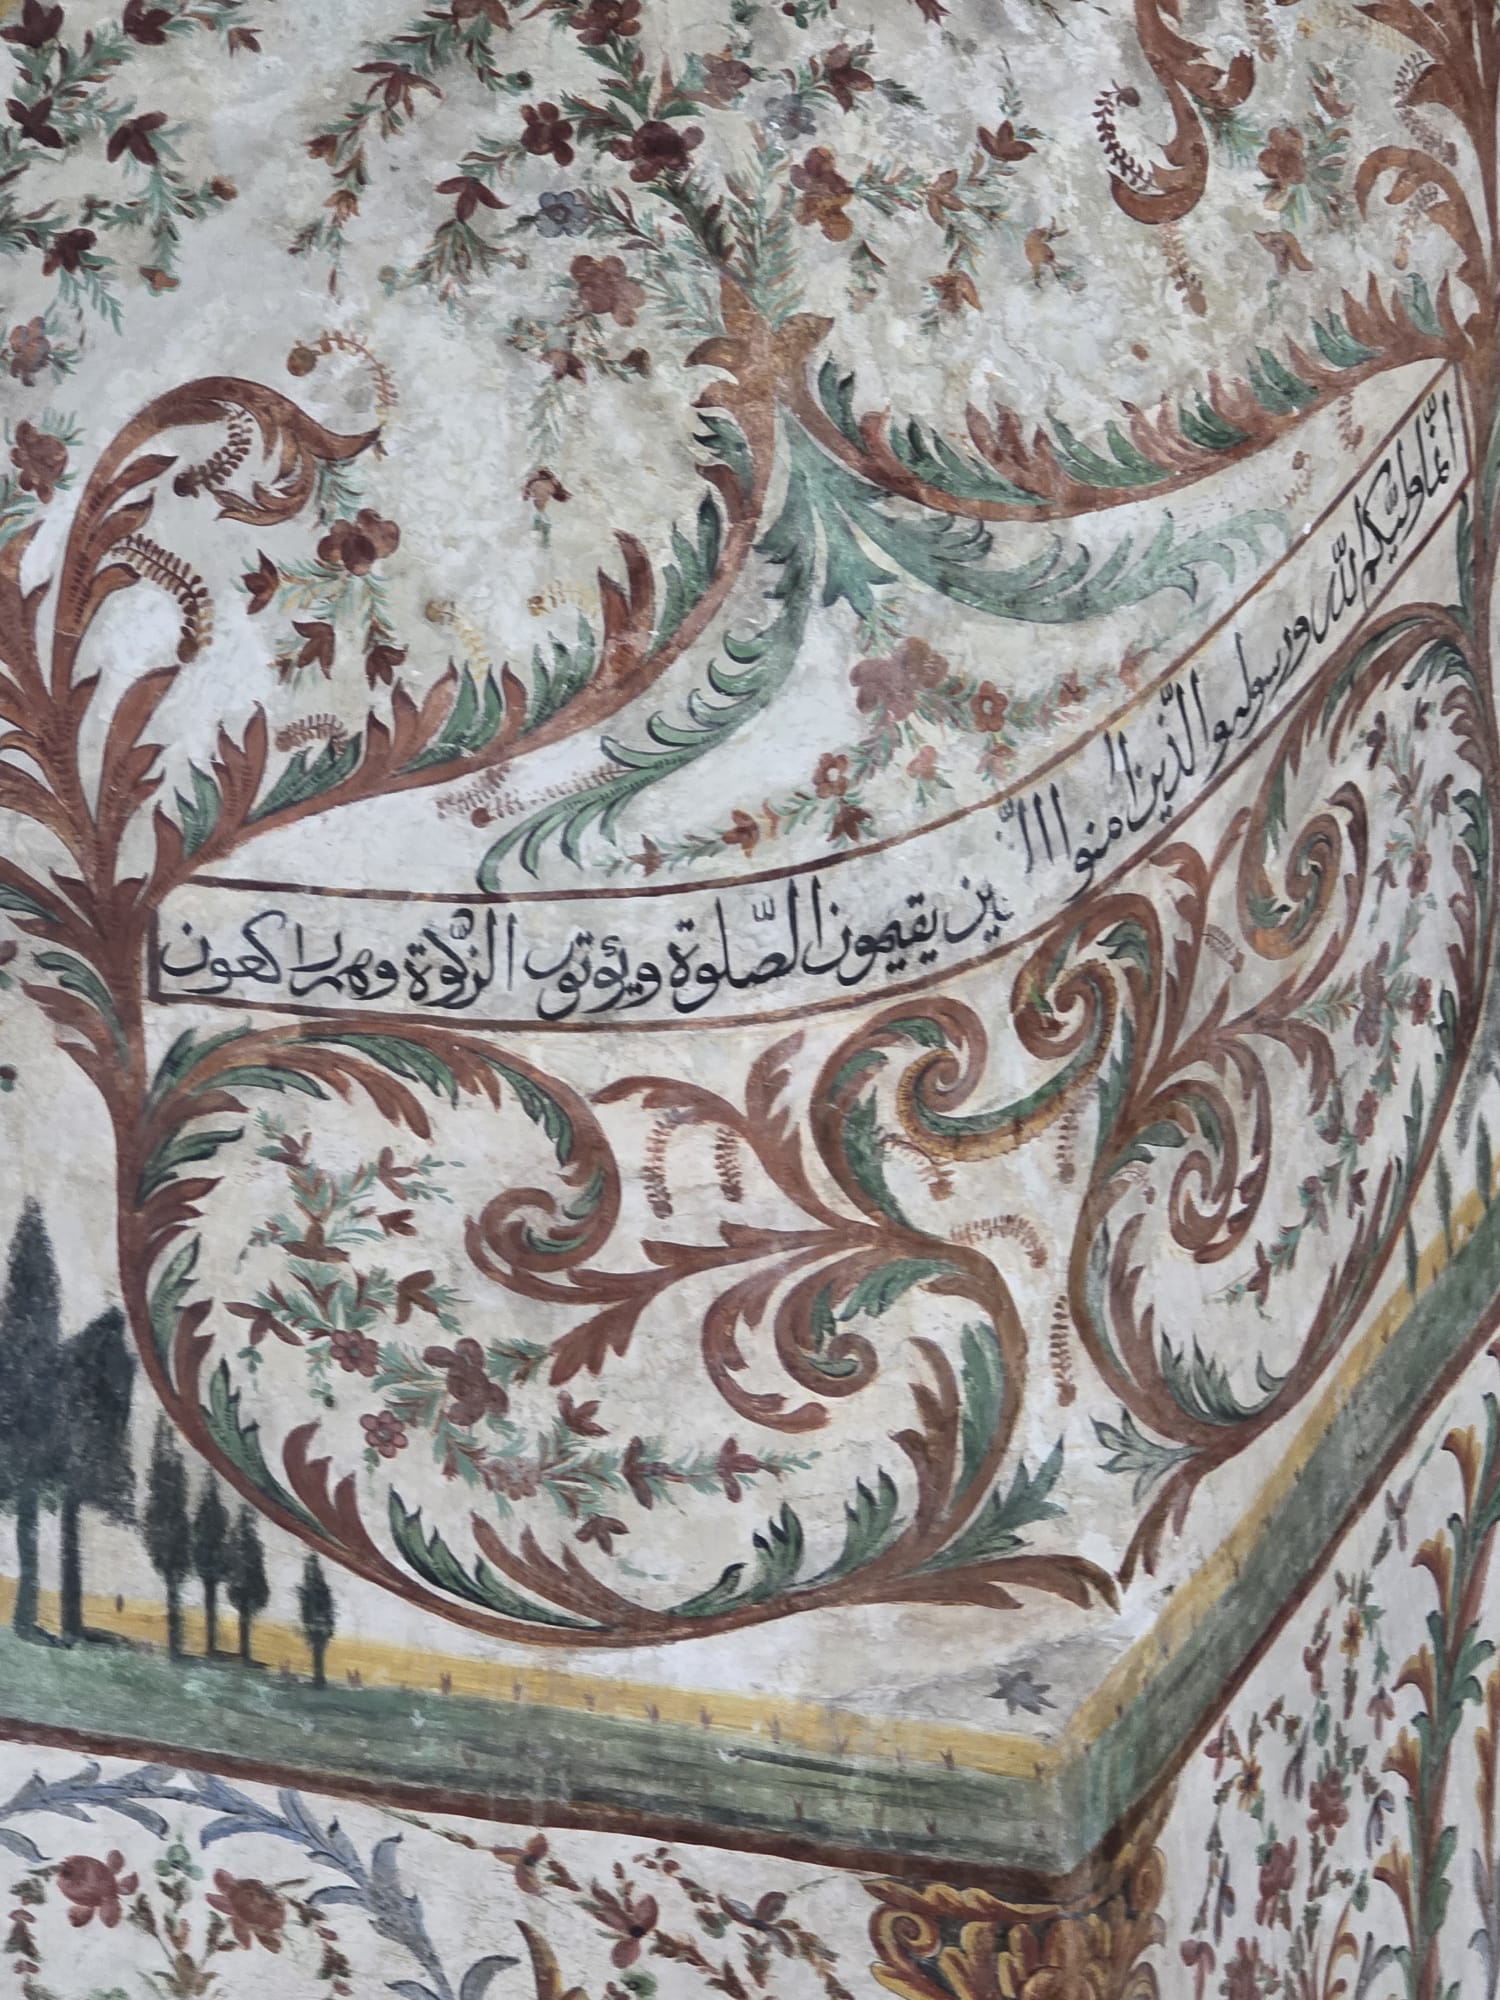 انّما وليّكم الله ورسوله والّذين اٰمنوا الّذين يقيمون الصّلوة ويؤتون الزّكوة وهم راكعون